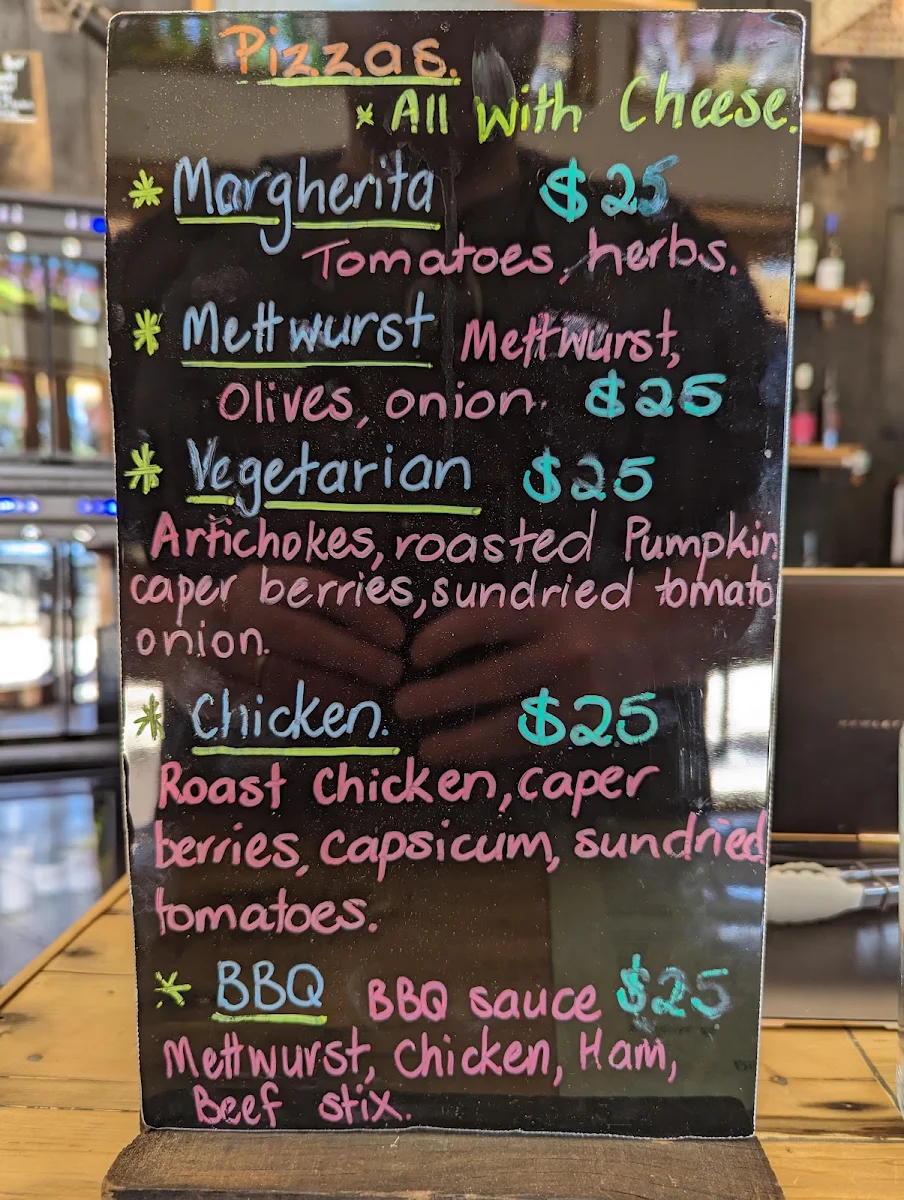 Pizzas.
* All with Cheese.
* Margherita $25
Tomatoes, herbs.
* Mettwurst Mettwurst,
Olives, onion. $25
* Vegetarian $25
Artichokes, roasted Pumpkin
caper berries, sundried tomato
onion.
* Chicken. $25
Roast Chicken, caper
berries, capsicum, sundried
tomatoes.
* BBQ BBQ sauce $25
Mettwurst, Chicken, Ham,
Beef stix.